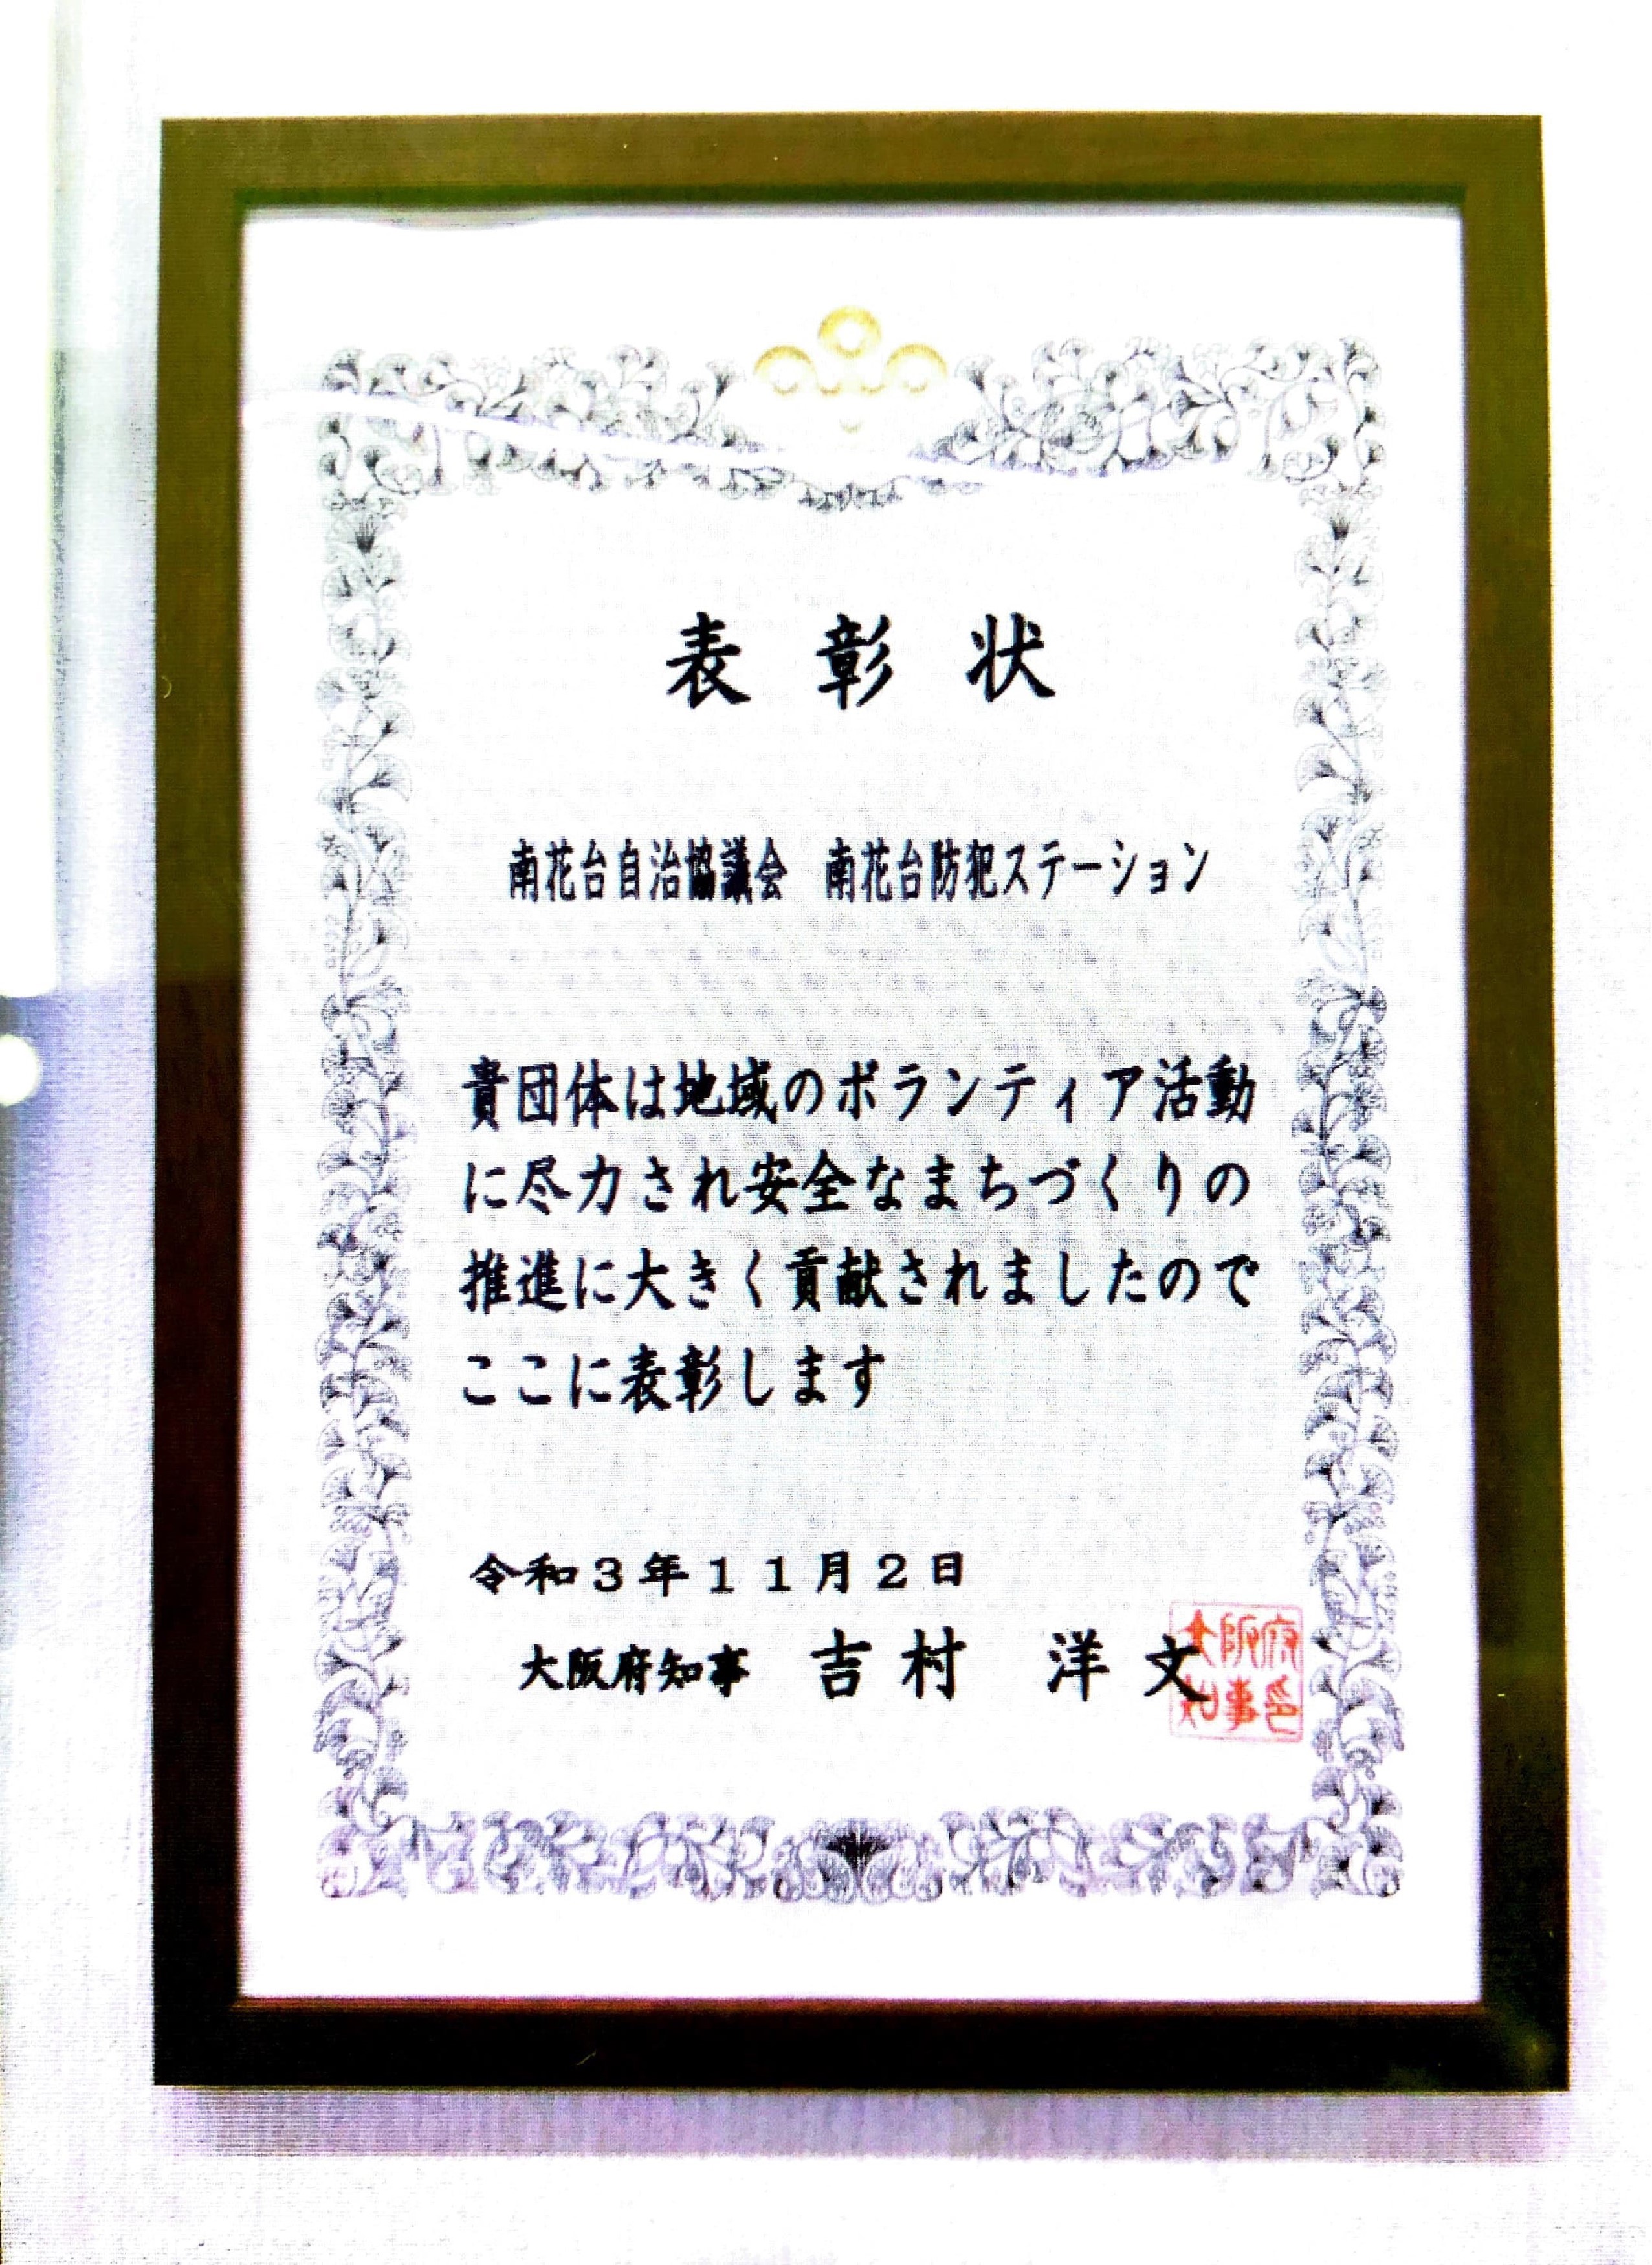 表彰状
南花台自治協議会 南花台防犯ステーション
貴団体は地域のボランティア活動
に尽力され安全なまちづくりの
推進に大きく貢献されましたので
ここに表彰します
令和3年11月2日
大阪府知事 吉村 洋文
大阪府
知事印